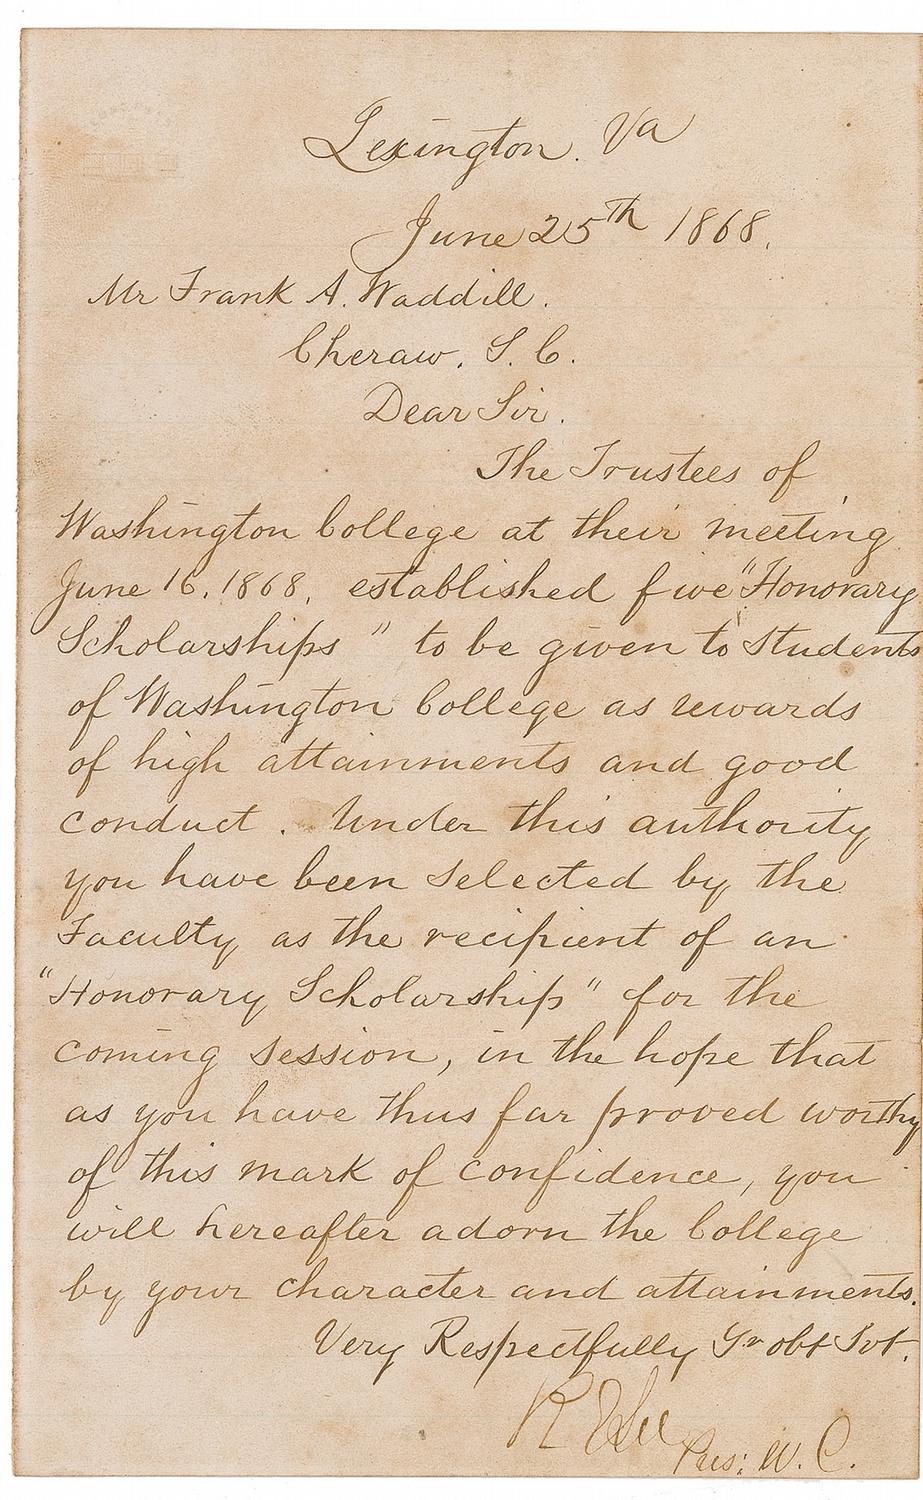 Lexington. Va
June 25th 1868.
Mr Frank A. Waddill.
Cheraw. S. C.
Dear Sir.
The Trustees of
Washington College at their meeting
June 16. 1868. established five "Honorary
Scholarships" to be given to Students
of Washington College as rewards
of high attainments and good
conduct. Under this authority
you have been selected by the
Faculty as the recipient of an
"Honorary Scholarship" for the
coming session, in the hope that
as you have thus far proved worthy
of this mark of confidence, you
will hereafter adorn the College
by your character and attainments.
Very Respectfully Yr obt Svt.
R E Lee
Pres: W. C.